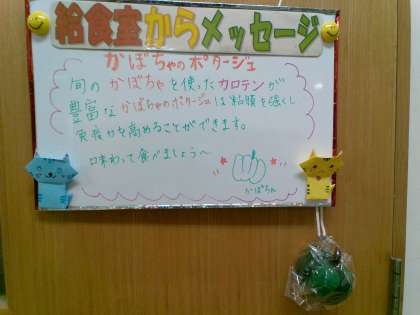 給食室からメッセージ
かぼちゃのポタージュ
旬のかぼちゃを使ったカロテンが
豊富なかぼちゃのポタージュは粘膜を強くし
免疫力を高めることができます。
味わって食べましょう〜
かぼちゃん